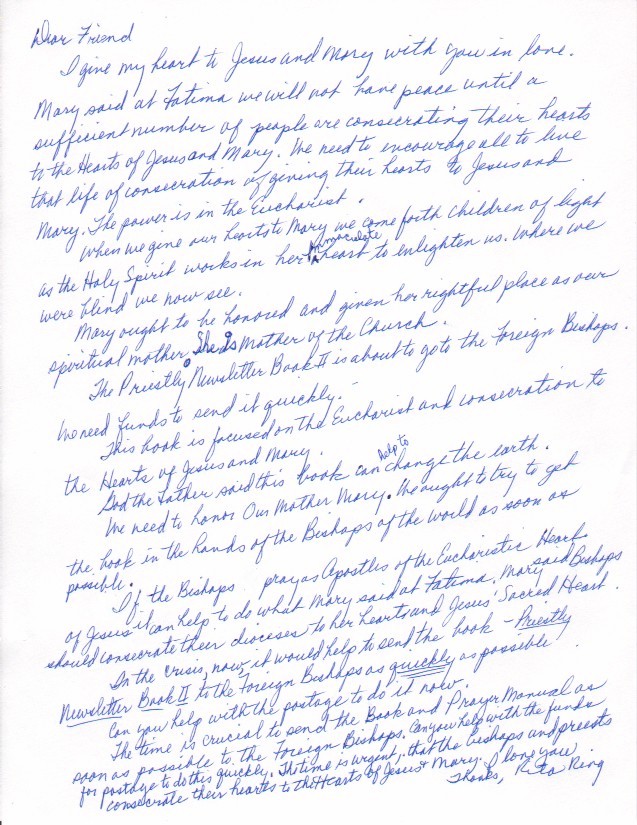 Dear Friend
I give my heart to Jesus and Mary with you in love.
Mary said at Fatima we will not have peace until a
sufficient number of people are consecrating their hearts
to the Hearts of Jesus and Mary. We need to encourage all to live
that life of consecration of giving their hearts to Jesus and
Mary. The power is in the Eucharist.
When we give our hearts to Mary we come forth children of light
as the Holy Spirit works in her Immaculate heart to enlighten us. Where we
were blind we now see.
Mary ought to be honored and given her rightful place as our
spiritual mother. She is Mother of the Church.
The Priestly Newsletter Book II is about to go to the Foreign Bishops.
We need funds to send it quickly.
This book is focused on the Eucharist and consecration to
the Hearts of Jesus and Mary.
God the Father said this book can help to change the earth.
We need to honor Our Mother Mary. We ought to try to get
the book in the hands of the Bishops of the world as soon as
possible.
If the Bishops pray as Apostles of the Eucharistic Heart
of Jesus it can help to do what Mary said at Fatima. Mary said Bishops
should consecrate their dioceses to her heart and Jesus' Sacred Heart.
In the crisis, now, it would help to send the book - Priestly
Newsletter Book II to the Foreign Bishops as quickly as possible
Can you help with the postage to do it now.
The time is crucial to send the Book and Prayer Manual as
soon as possible to the Foreign Bishops. Can you help with the funds
for postage to do this quickly. The time is urgent, that the bishops and priests
consecrate their hearts to the Hearts of Jesus & Mary. I love you
Thanks, Rita Ring